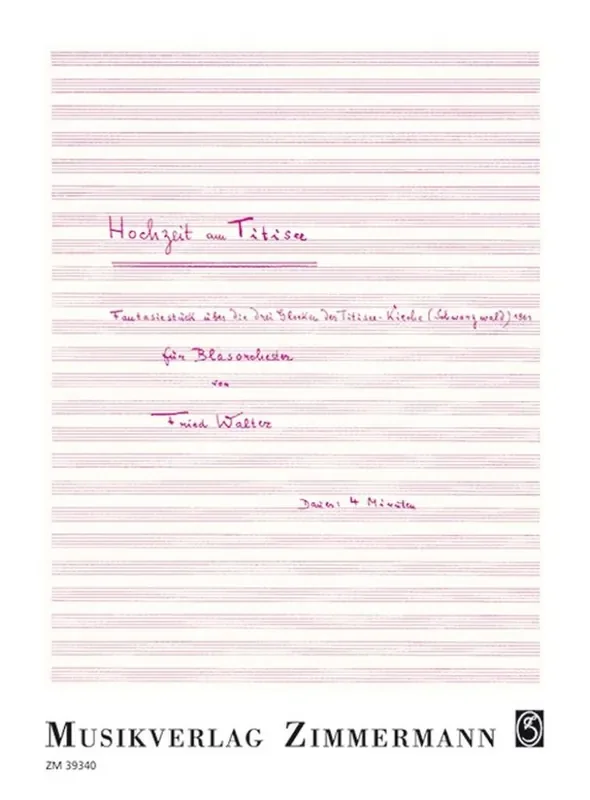 Hochzeit am Titisee
Fantasiestück über die drei Glocken der Titisee-Kirche (Schwarzwald)
für Blasorchester
von
Fried Walter
Dauer: 4 Minuten
MUSIKVERLAG ZIMMERMANN
ZM 39340